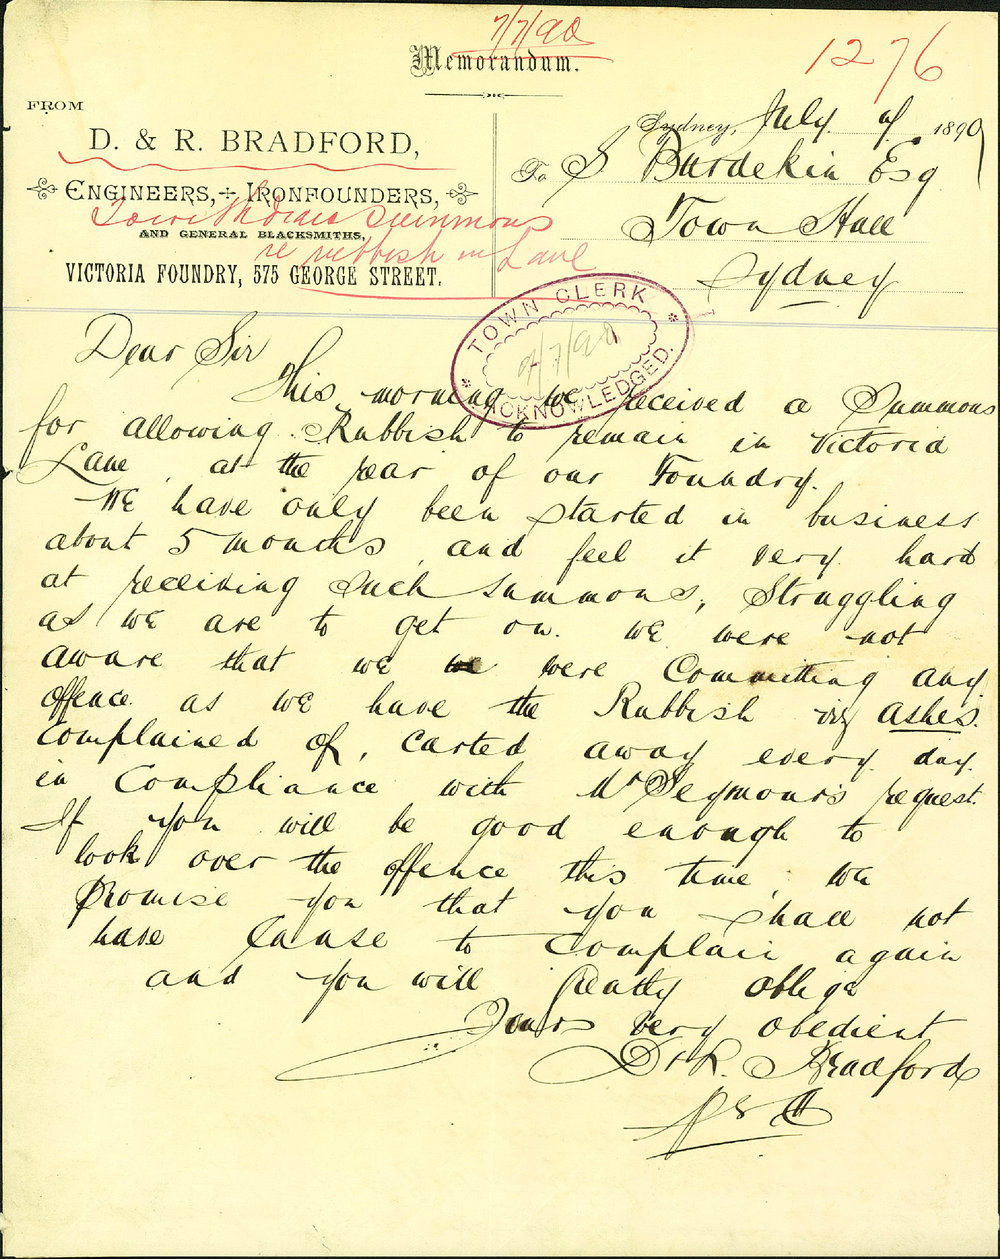 7/7/90
Memorandum.
1276
FROM
D. & R. BRADFORD,
ENGINEERS, + IRONFOUNDERS,
AND GENERAL BLACKSMITHS,
VICTORIA FOUNDRY, 575 GEORGE STREET.
summons
re rubbish in Lane
Sydney, July 1890
To S Burdekin Esq
Town Hall
Sydney
TOWN CLERK
7/90
ACKNOWLEDGED.
Dear Sir
This morning we received a Summons
for allowing Rubbish to remain in Victoria
Lane, at the rear of our Foundry.
We have only been started in business
about 5 months, and feel it very hard
at receiving such summons, Struggling
as we are to get on. we were not
aware that we were Committing any
offence as we have the Rubbish viz Ashes.
complained of, carted away every day.
in Compliance with Mr Seymour's request.
If you will be good enough to
look over the offence this time, we
Promise you that you shall not
have Cause to Complain again
and you will Greatly oblige
Yours very obedient
D & R. Bradford